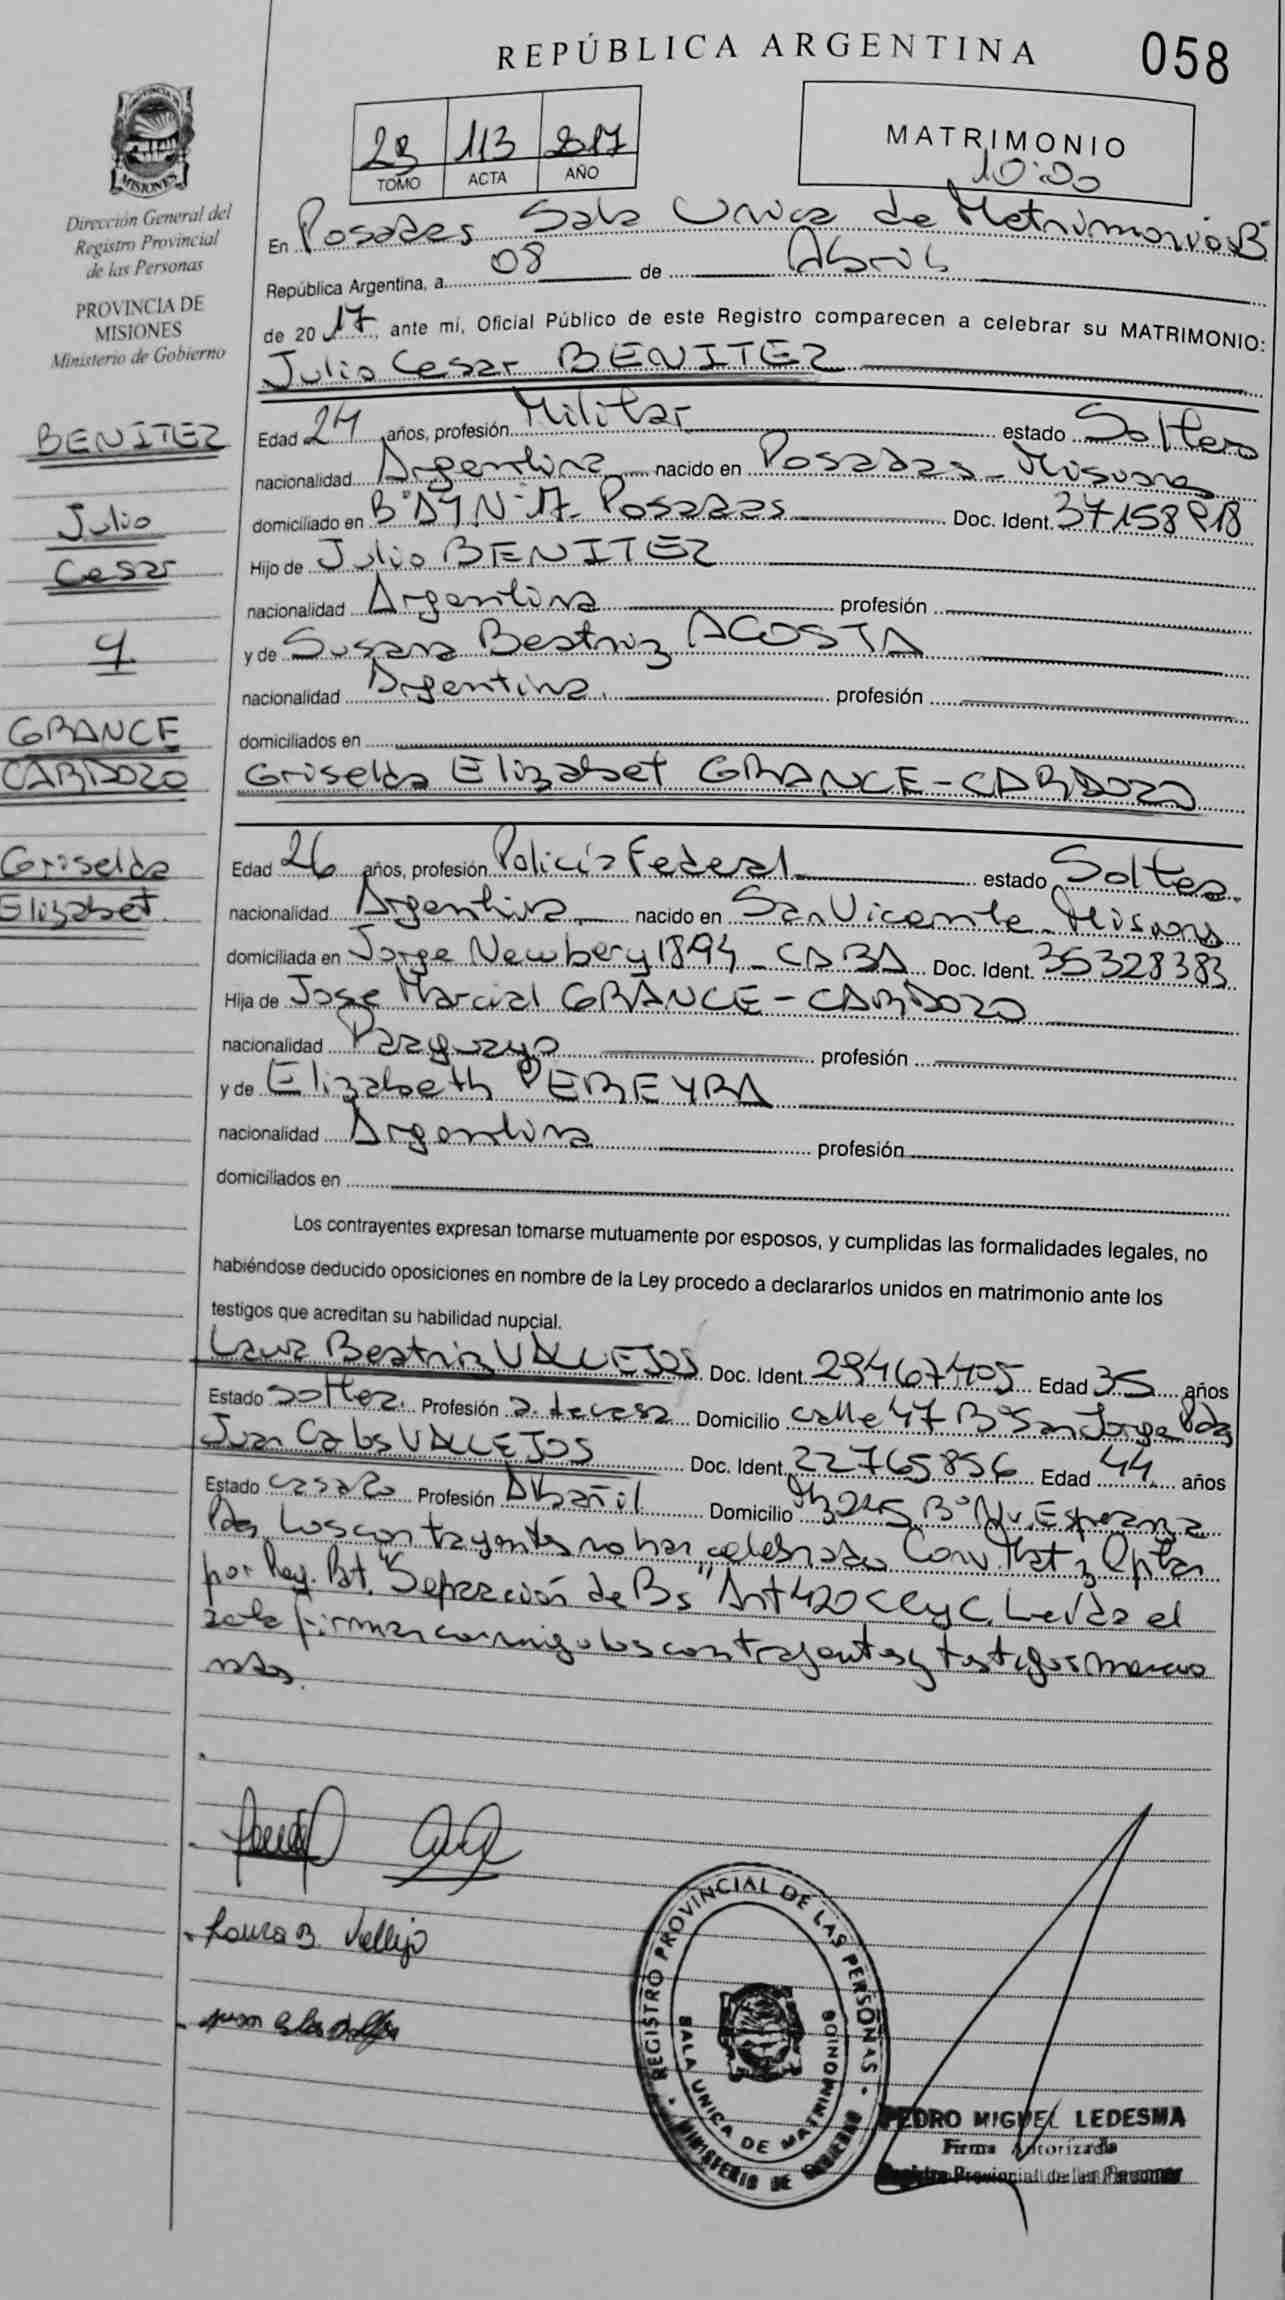 REPÚBLICA ARGENTINA
058
PROVINCIA DE
MISIONES
Dirección General del
Registro Provincial
de las Personas
PROVINCIA DE
MISIONES
Ministerio de Gobierno
23 113 2017
TOMO ACTA AÑO
MATRIMONIO
10:00
En Posadas Sala Unica de Matrimonios B
República Argentina, a 08 de Abril
de 2017, ante mí, Oficial Público de este Registro comparecen a celebrar su MATRIMONIO:
Julio Cesar BENITEZ
Edad 24 años, profesión Militar estado Soltero
nacionalidad Argentina nacido en Posadas - Misiones
domiciliado en Posadas Doc. Ident. 37158918
Hijo de Julio BENITEZ
nacionalidad Argentina profesión
y de Susana Beatriz ACOSTA
nacionalidad Argentina. profesión
domiciliados en
Griselda Elizabet GRANCE-CARDOZO
Edad 26 años, profesión Policía Federal estado Soltera.
nacionalidad Argentina nacido en San Vicente - Misiones
domiciliada en Jorge Newbery 1894 - CABA Doc. Ident. 35328383
Hija de Jose Marcial GRANCE-CARDOZO
nacionalidad Paraguayo profesión
y de Elizabeth PEREYRA
nacionalidad Argentina profesión
domiciliados en
BENITEZ
Julio
Cesar
y
GRANCE
CARDOZO
Griselda
Elizabet.
Los contrayentes expresan tomarse mutuamente por esposos, y cumplidas las formalidades legales, no
habiéndose deducido oposiciones en nombre de la Ley procedo a declararlos unidos en matrimonio ante los
testigos que acreditan su habilidad nupcial.
Laura Beatriz VALLEJOS Doc. Ident. 29467405 Edad 35 años
Estado Soltera. Profesión a. de casa Domicilio calle 47 B° San Jorge Pdas
Juan Carlos VALLEJOS Doc. Ident. 22765856 Edad 44 años
Estado casado Profesión Albañil Domicilio B° Nv. Esperanza
Pdas. Los contrayentes no han celebrado Conv. Mat. y Optan
por Reg. Pat. "Separación de Bs" Art 420 CCyC. Leída el
acta firman conmigo los contrayentes y testigos mencio
nados.
Laura B. Vallejo
REGISTRO PROVINCIAL DE LAS PERSONAS
SALA UNICA DE MATRIMONIOS
MINISTERIO DE GOBIERNO
PEDRO MIGUEL LEDESMA
Firma Autorizada
Registro Provincial de las Personas